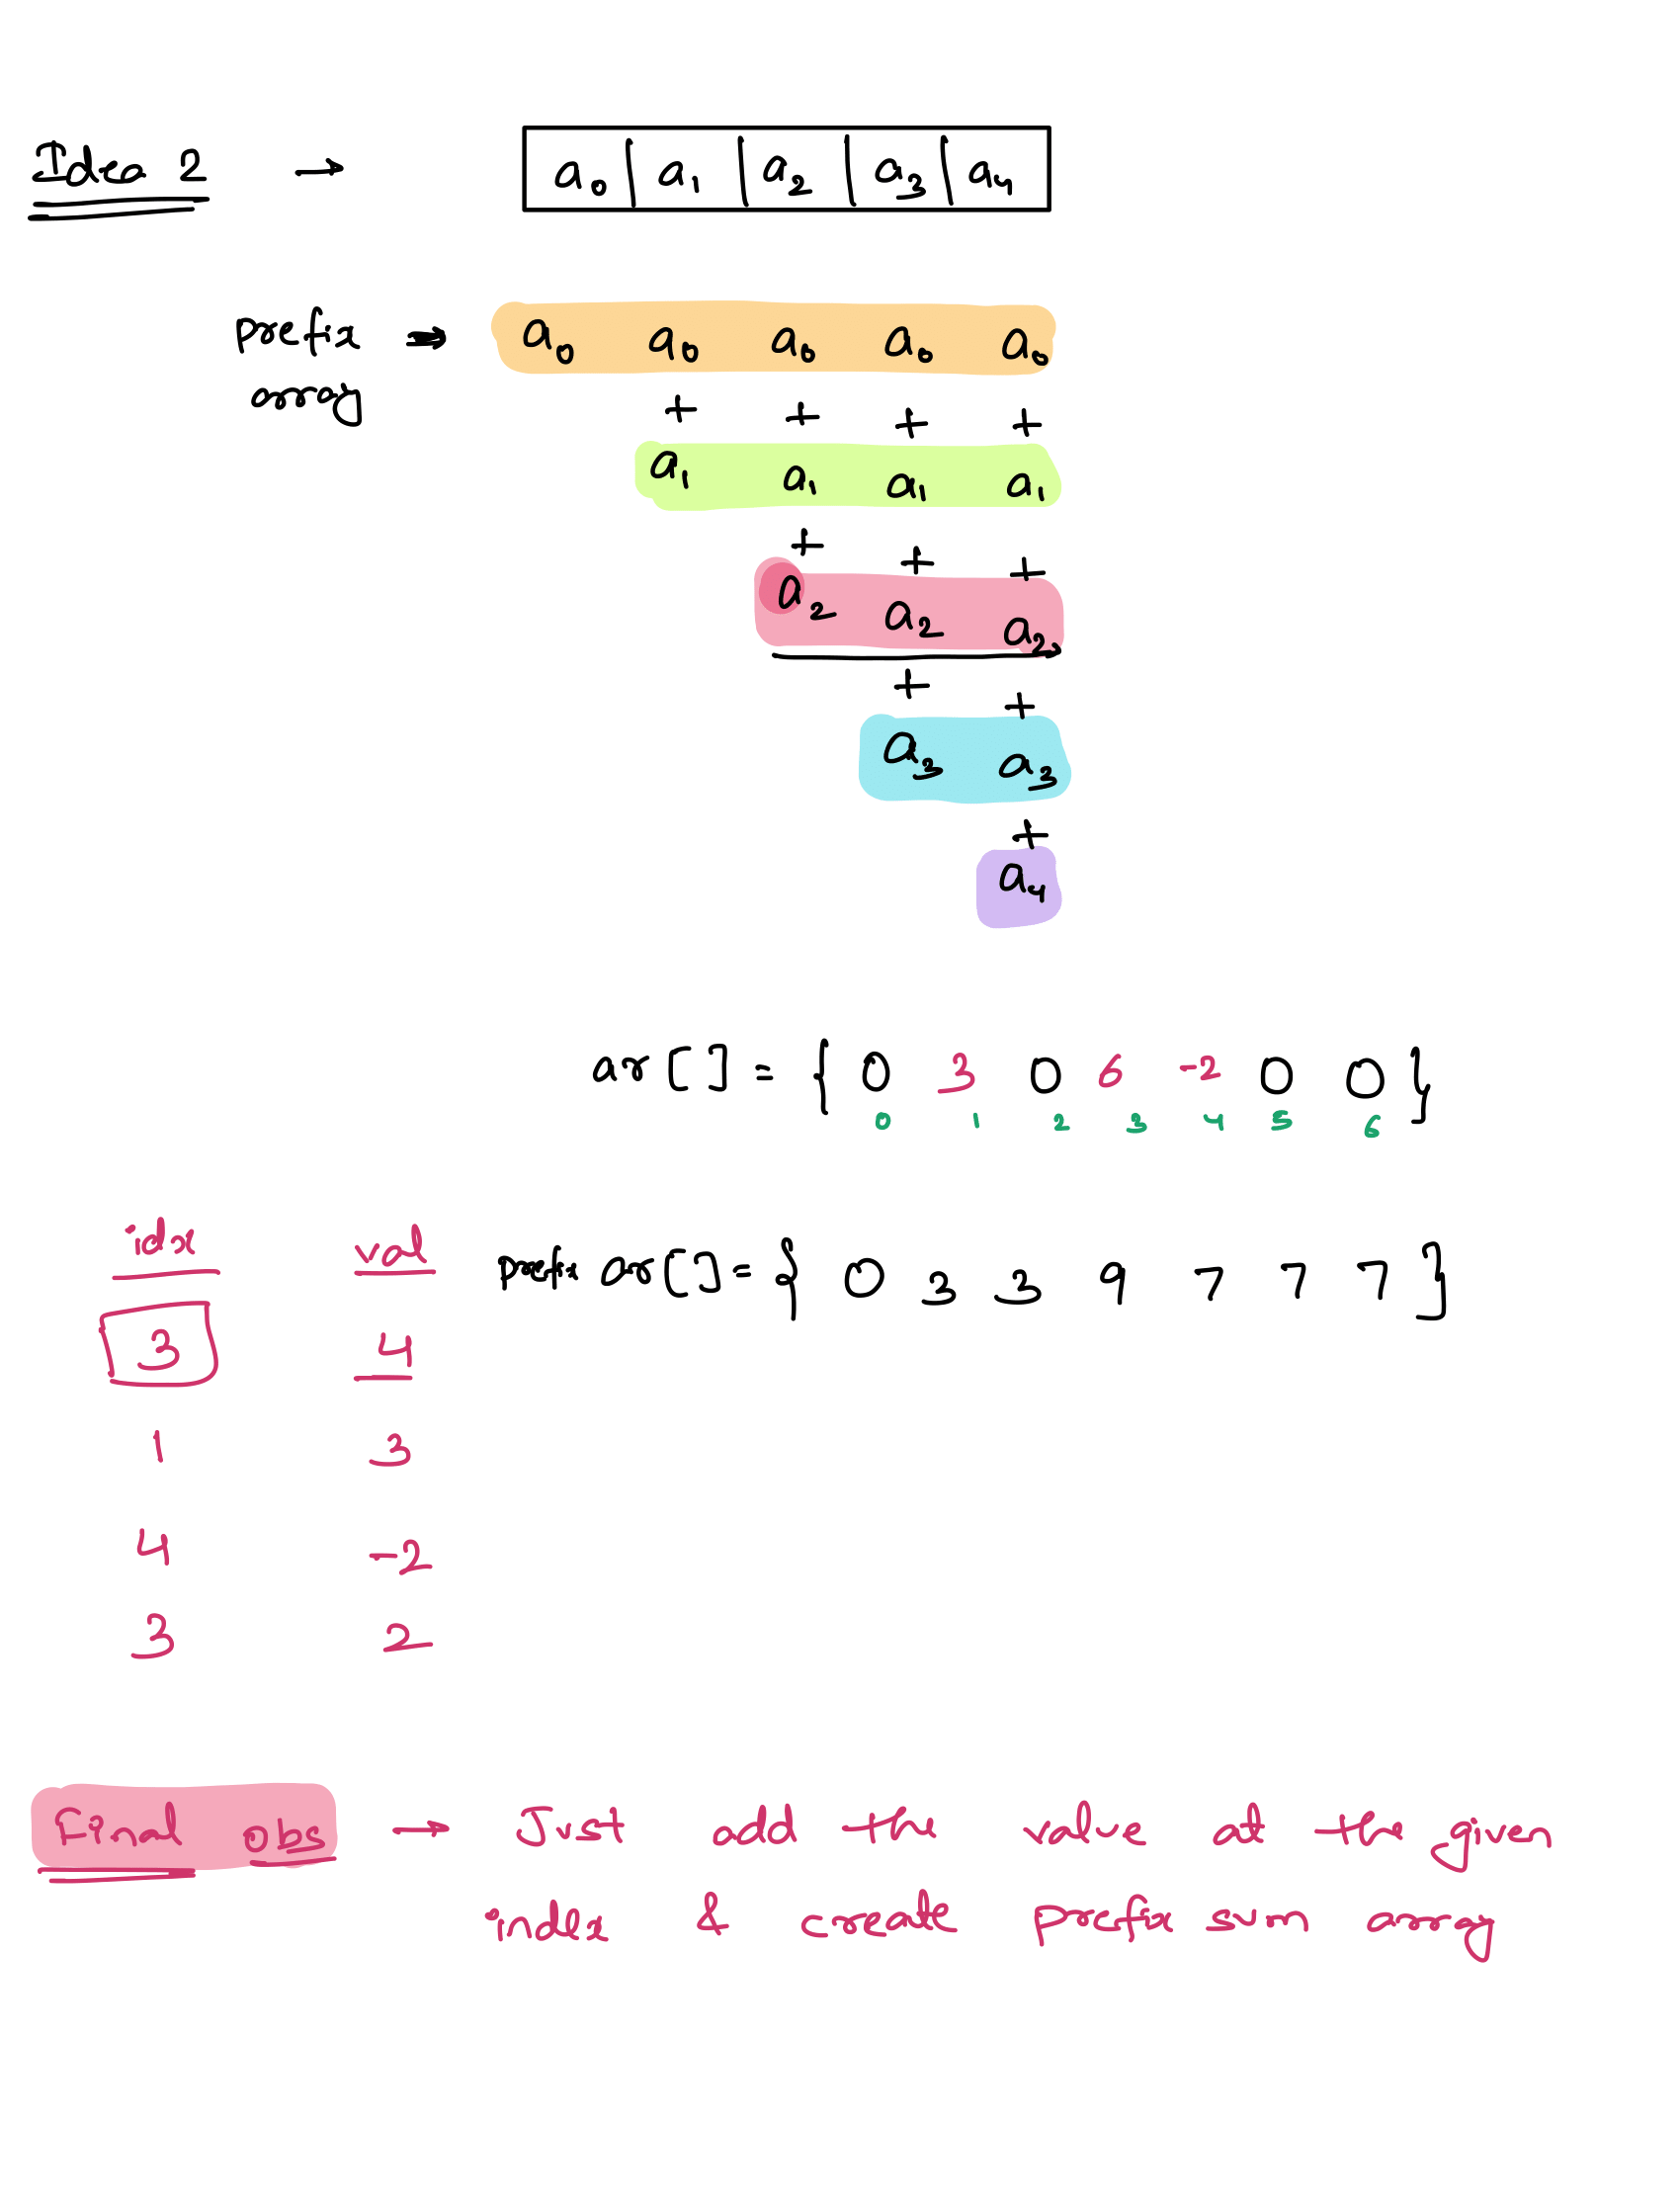 Idea 2 → a₀ | a₁ | a₂ | a₃ | a₄
prefix → a₀ a₀ a₀ a₀ a₀
array + + + +
a₁ a₁ a₁ a₁
+ + +
a₂ a₂ a₂
+ +
a₃ a₃
+
a₄
ar[] = { 0 3 0 6 -2 0 0 }
0 1 2 3 4 5 6
idx val prefix ar[] = { 0 3 3 9 7 7 7 }
3 4
1 3
4 -2
3 2
Final obs → Just add the value at the given
index & create prefix sum array